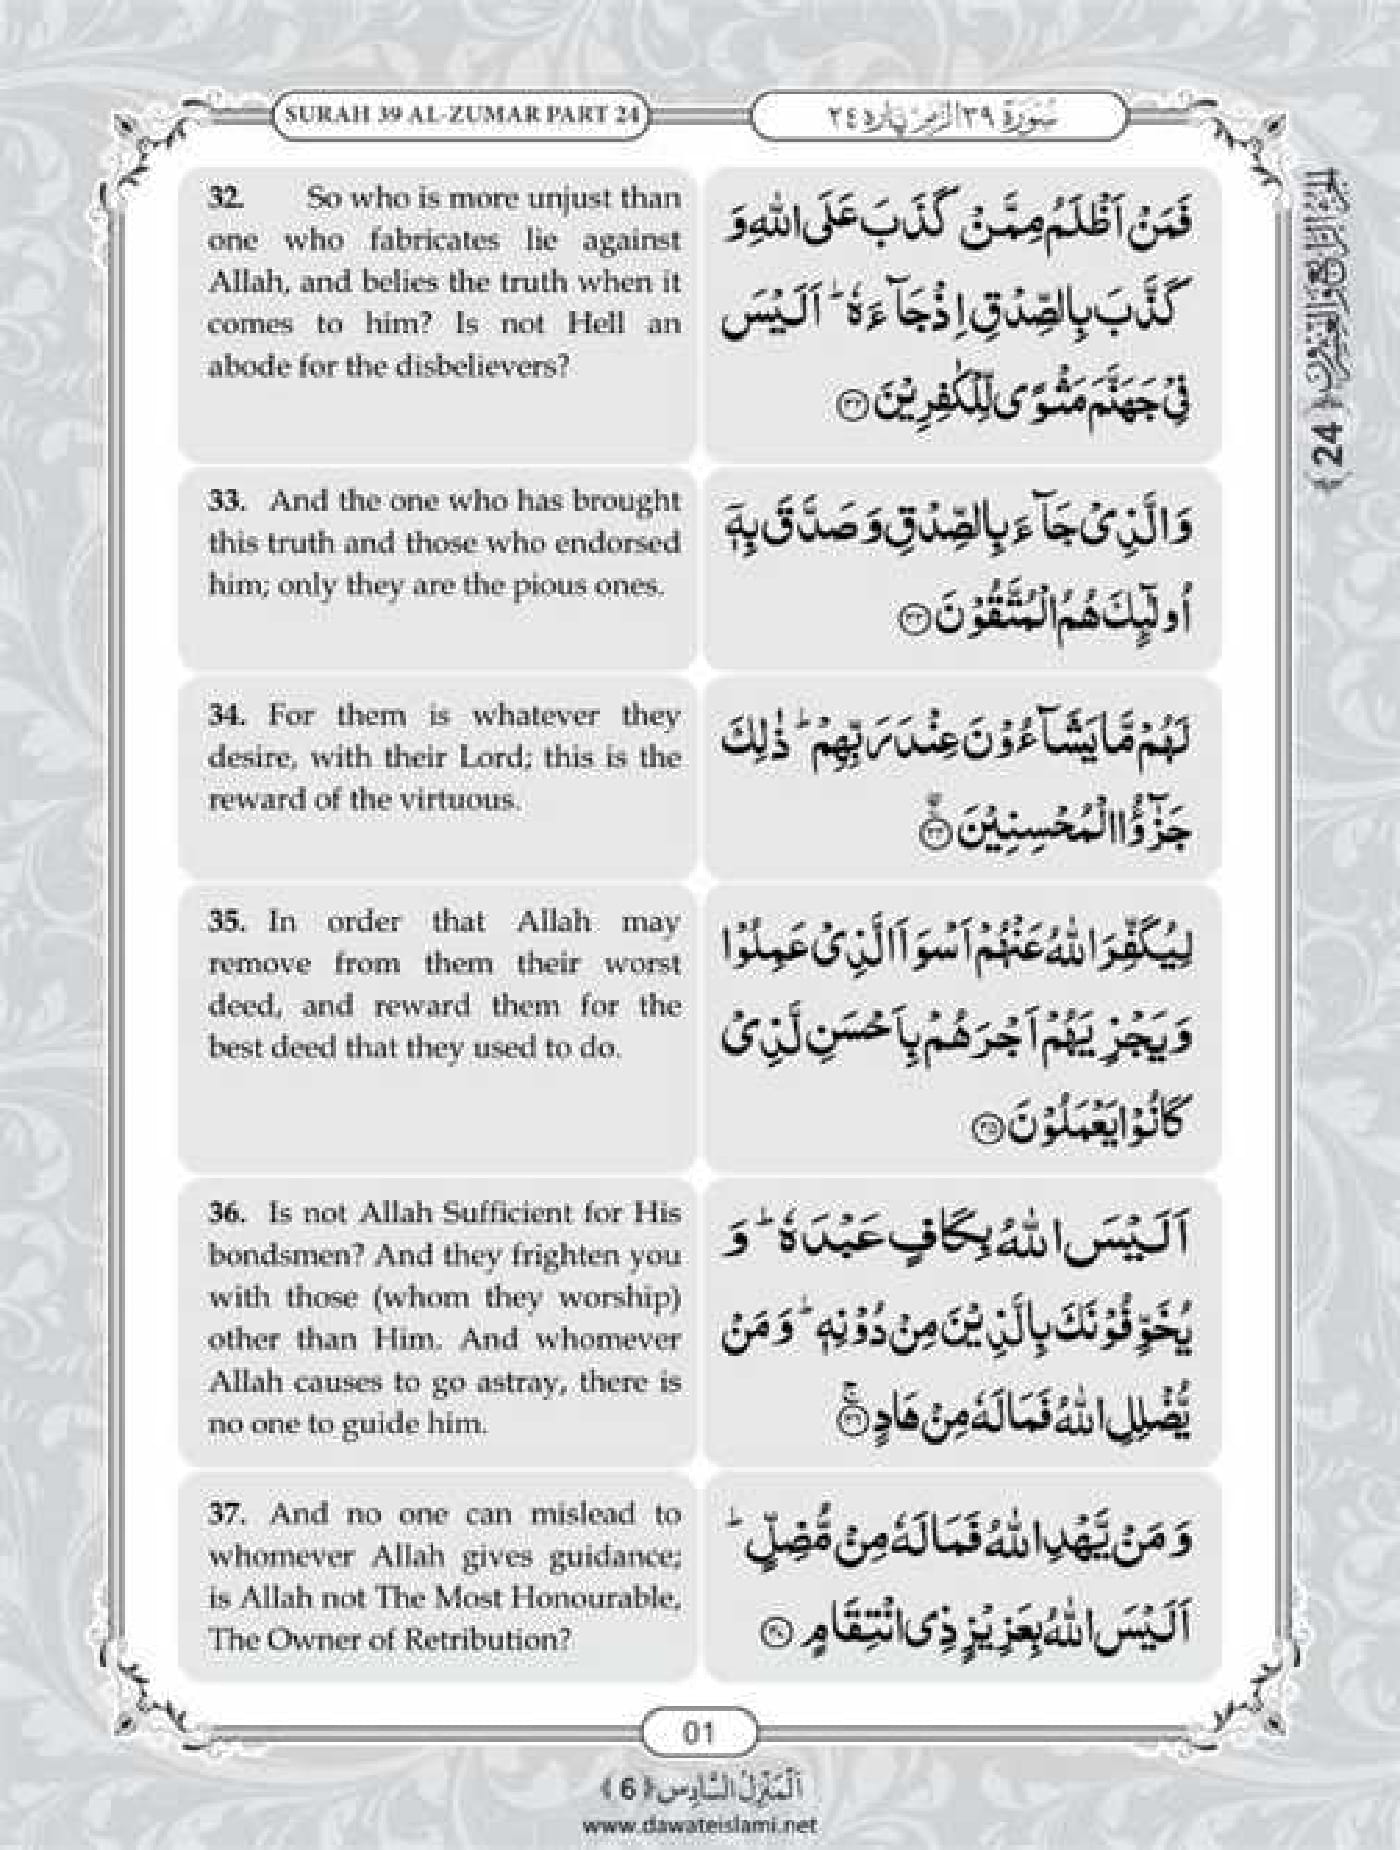 SURAH 39 AL-ZUMAR PART 24
سُوْرَۃُ ٣٩ الزُّمَر پارہ ٢٤
32. So who is more unjust than
one who fabricates lie against
Allah, and belies the truth when it
comes to him? Is not Hell an
abode for the disbelievers?
فَمَنْ اَظْلَمُ مِمَّنْ كَذَبَ عَلَى اللّٰهِ وَ
كَذَّبَ بِالصِّدْقِ اِذْ جَآءَهٗ ؕ اَلَیْسَ
فِیْ جَهَنَّمَ مَثْوًی لِّلْكٰفِرِیْنَ ﴿۳۲﴾
33. And the one who has brought
this truth and those who endorsed
him; only they are the pious ones.
وَ الَّذِیْ جَآءَ بِالصِّدْقِ وَ صَدَّقَ بِهٖۤ
اُولٰٓىِٕكَ هُمُ الْمُتَّقُوْنَ ﴿۳۳﴾
34. For them is whatever they
desire, with their Lord; this is the
reward of the virtuous.
لَهُمْ مَّا یَشَآءُوْنَ عِنْدَ رَبِّهِمْ ؕ ذٰلِكَ
جَزٰٓؤُا الْمُحْسِنِیْنَ ﴿۳۴﴾
35. In order that Allah may
remove from them their worst
deed, and reward them for the
best deed that they used to do.
لِیُكَفِّرَ اللّٰهُ عَنْهُمْ اَسْوَاَ الَّذِیْ عَمِلُوْا
وَ یَجْزِیَهُمْ اَجْرَهُمْ بِاَحْسَنِ الَّذِیْ
كَانُوْا یَعْمَلُوْنَ ﴿۳۵﴾
36. Is not Allah Sufficient for His
bondsmen? And they frighten you
with those (whom they worship)
other than Him. And whomever
Allah causes to go astray, there is
no one to guide him.
اَلَیْسَ اللّٰهُ بِكَافٍ عَبْدَهٗ ؕ وَ
یُخَوِّفُوْنَكَ بِالَّذِیْنَ مِنْ دُوْنِهٖ ؕ وَ مَنْ
یُّضْلِلِ اللّٰهُ فَمَا لَهٗ مِنْ هَادٍ ﴿۳۶﴾
37. And no one can mislead to
whomever Allah gives guidance;
is Allah not The Most Honourable,
The Owner of Retribution?
وَ مَنْ یَّهْدِ اللّٰهُ فَمَا لَهٗ مِنْ مُّضِلٍّ ؕ
اَلَیْسَ اللّٰهُ بِعَزِیْزٍ ذِی انْتِقَامٍ ﴿۳۷﴾
الجزء الرابع والعشرون ﴿24﴾
01
اَلْمَنْزِلُ السَّادِس ﴿6﴾
www.dawateislami.net